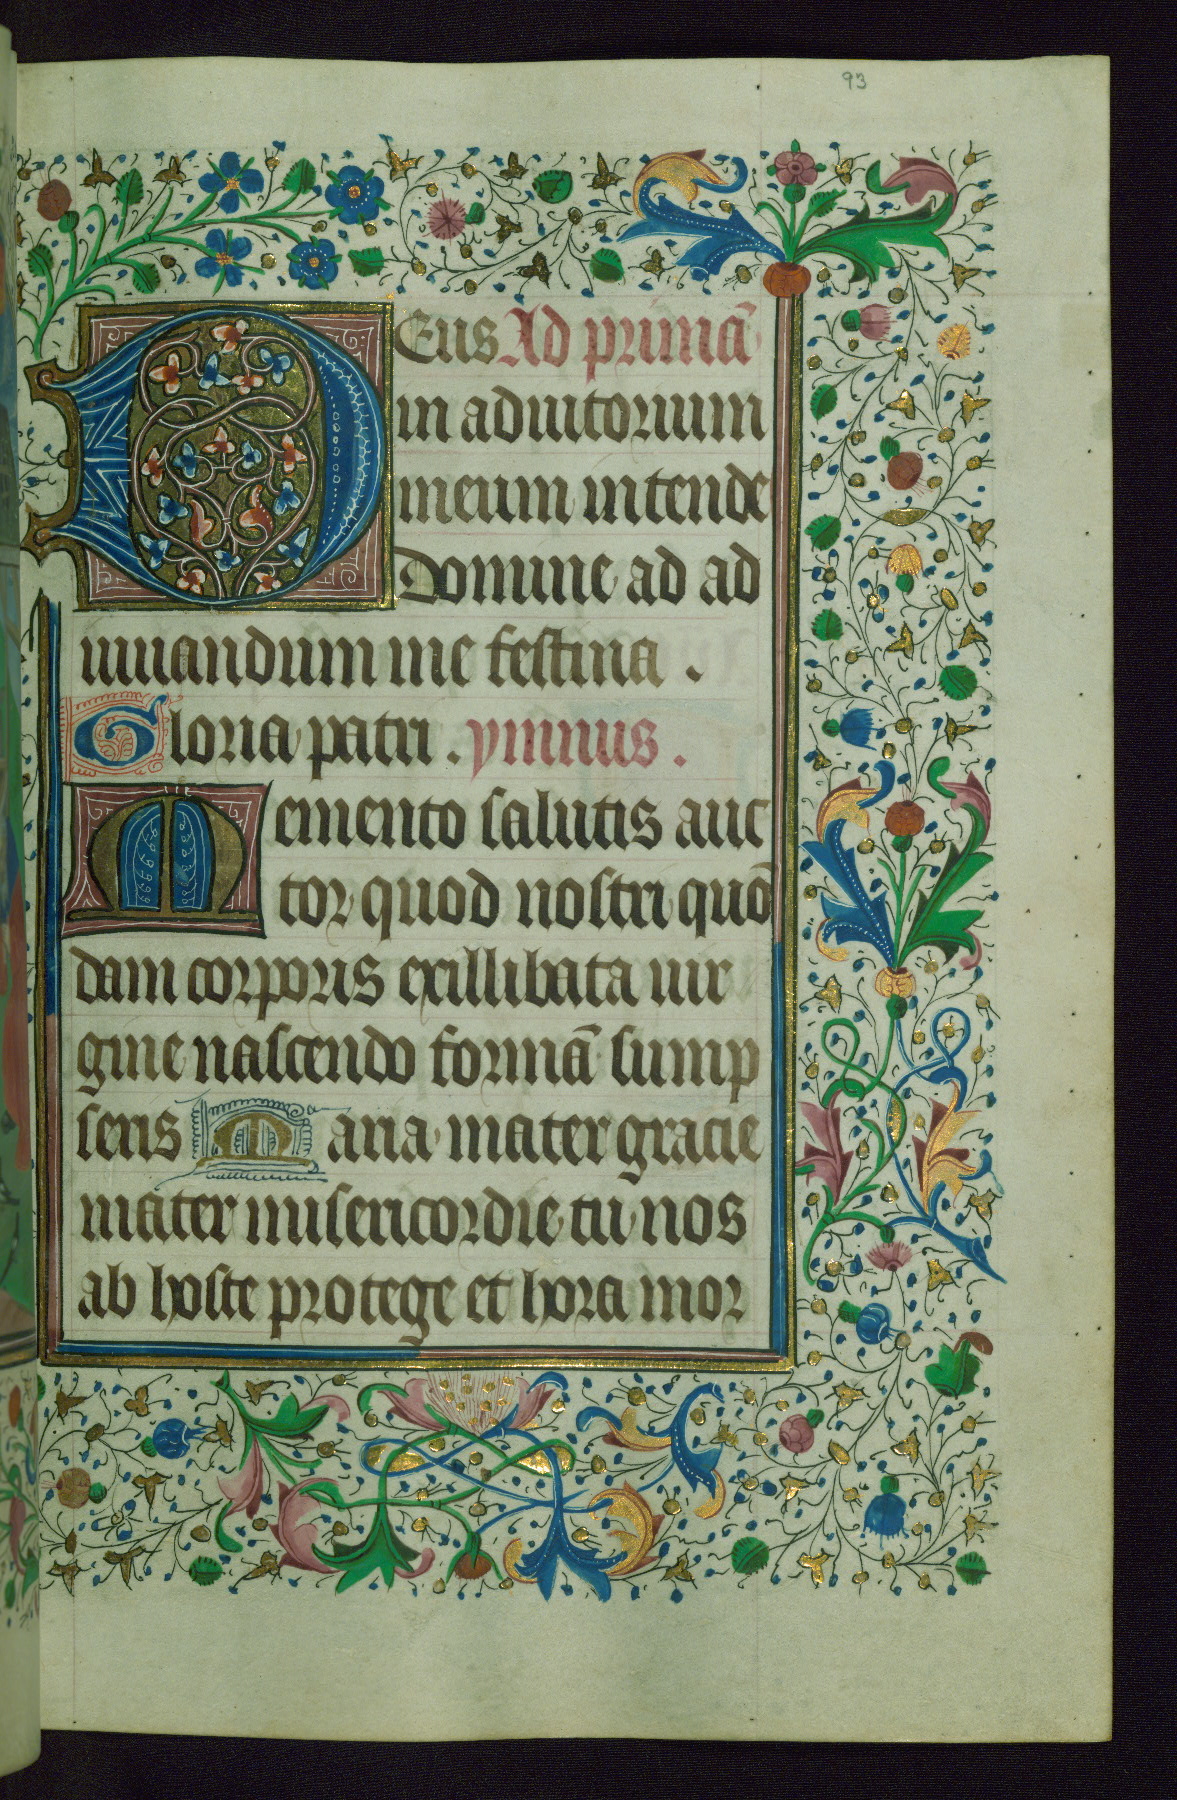 93
Deus Ad primā
in adiutorium
meum intende
Domine ad ad
iuuandum me festina .
Gloria patri . ymnus .
Memento salutis auc
tor quod nostri quō
dam corporis exillibata uir
gine nascendo formā sump
seris Maria mater gracie
mater misericordie tu nos
ab hoste protege et hora mor